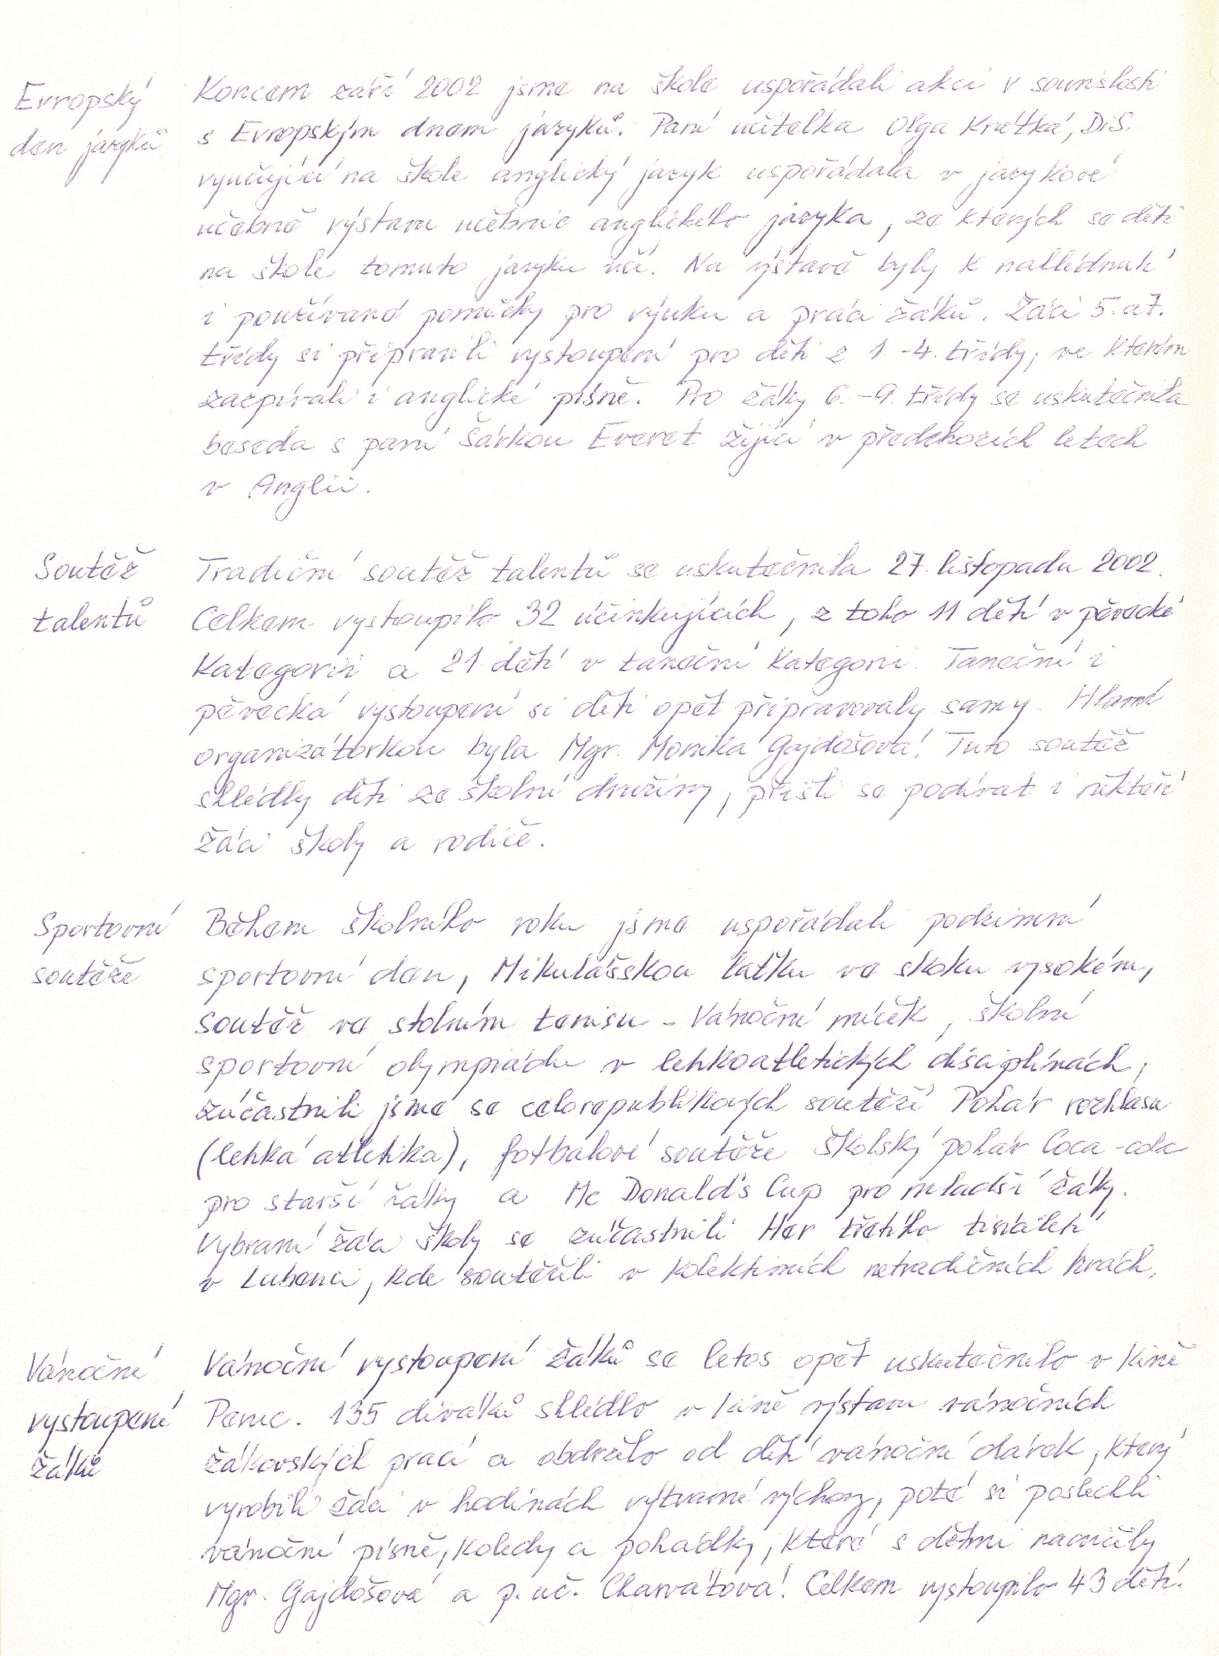 Evropský
den jazyků
Koncem září 2002 jsme na škole uspořádali akci v souvislosti
s Evropským dnem jazyků. Paní učitelka Olga Krátká, DiS.
vyučující na škole anglický jazyk uspořádala v jazykové
učebně výstavu učebnic anglického jazyka, ze kterých se děti
na škole tomuto jazyku učí. Na výstavě byly k nahlédnutí
i používané pomůcky pro výuku a práci žáků. Žáci 5. a 7.
třídy si připravili vystoupení pro děti z 1.-4. třídy, ve kterém
zazpívali i anglické písně. Pro žáky 6.-9. třídy se uskutečnila
beseda s paní Šárkou Everet žijící v předchozích letech
v Anglii.
Soutěž
talentů
Tradiční soutěž talentů se uskutečnila 27. listopadu 2002.
Celkem vystoupilo 32 účinkujících, z toho 11 dětí v pěvecké
kategorii a 21 dětí v taneční kategorii. Taneční i
pěvecká vystoupení si děti opět připravovaly samy. Hlavní
organizátorkou byla Mgr. Monika Gajdošová. Tuto soutěž
shlédly děti ze školní družiny, přišli se podívat i někteří
žáci školy a rodiče.
Sportovní
soutěže
Během školního roku jsme uspořádali podzimní
sportovní den, Mikulášskou laťku ve skoku vysokém,
soutěž ve stolním tenisu - Vánoční míček, školní
sportovní olympiádu v lehkoatletických disciplínách,
zúčastnili jsme se celorepublikových soutěží Pohár rozhlasu
(lehká atletika), fotbalové soutěže Školský pohár Coca-cola
pro starší žáky a Mc Donald's Cup pro mladší žáky.
Vybraní žáci školy se zúčastnili Her třetího tisíciletí
v Lubenci, kde soutěžili v kolektivních netradičních hrách.
Vánoční
vystoupení
žáků
Vánoční vystoupení žáků se letos opět uskutečnilo v kině
Penc. 135 diváků shlédlo v kině výstavu vánočních
žákovských prací a obdrželo od dětí vánoční dárek, který
vyrobili žáci v hodinách výtvarné výchovy, poté si poslechli
vánoční písně, koledy a pohádky, které s dětmi nacvičily
Mgr. Gajdošová a p. uč. Charvátová. Celkem vystoupilo 43 dětí.